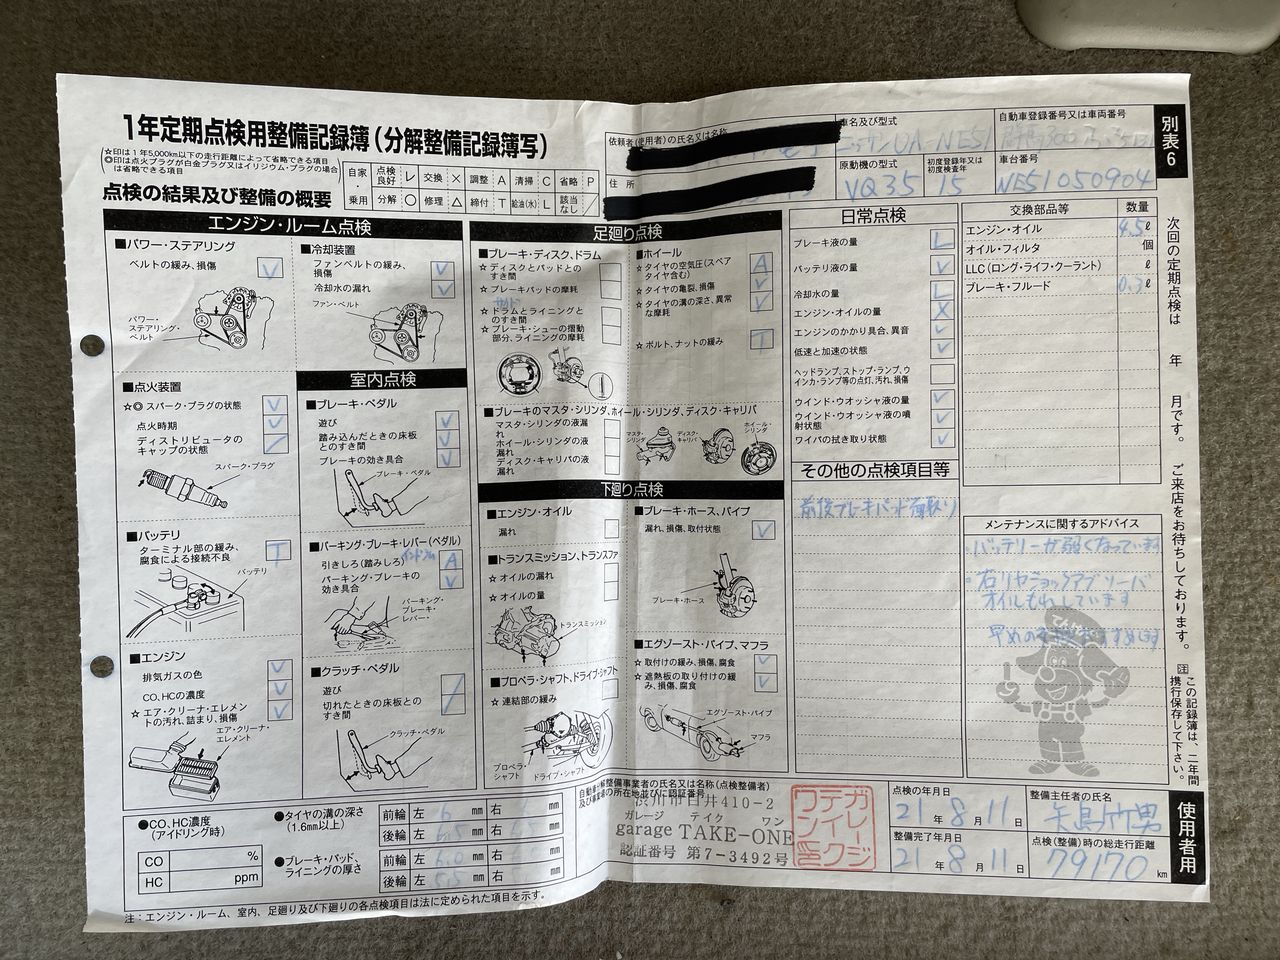 1年定期点検用整備記録簿(分解整備記録簿写)
☆印は1年5,000km以下の走行距離によって省略できる項目
◎印は点火プラグが白金プラグ又はイリジウム・プラグの場合は省略できる項目
自家・乗用
点検良好 レ 交換 × 調整 A 清掃 C 省略 P
分解 ○ 修理 △ 締付 T 給油(水) L 該当なし /
点検の結果及び整備の概要
依頼者(使用者)の氏名又は名称
住所
車名及び型式
ニッサンUA-NE51
自動車登録番号又は車両番号
原動機の型式
VQ35
初度登録年又は初度検査年
15
車台番号
NE51050904
別表6
エンジン・ルーム点検
■パワー・ステアリング
ベルトの緩み、損傷
パワー・ステアリング・ベルト
■冷却装置
ファンベルトの緩み、損傷
冷却水の漏れ
ファン・ベルト
■点火装置
☆◎スパーク・プラグの状態
点火時期
ディストリビュータのキャップの状態
スパーク・プラグ
■バッテリ
ターミナル部の緩み、腐食による接続不良 T
バッテリ
■エンジン
排気ガスの色
CO、HCの濃度
☆エア・クリーナ・エレメントの汚れ、詰まり、損傷
エア・クリーナ・エレメント
室内点検
■ブレーキ・ペダル
遊び
踏み込んだときの床板とのすき間
ブレーキの効き具合
ブレーキ・ペダル
■パーキング・ブレーキ・レバー(ペダル)
引きしろ(踏みしろ) A
パーキング・ブレーキの効き具合
パーキング・ブレーキ・レバー
■クラッチ・ペダル
遊び
切れたときの床板とのすき間
クラッチ・ペダル
足廻り点検
■ブレーキ・ディスク、ドラム
☆ディスクとパッドとのすき間
☆ブレーキパッドの摩耗
☆ドラムとライニングとのすき間
☆ブレーキ・シューの摺動部分、ライニングの摩耗
■ホイール
☆タイヤの空気圧(スペアタイヤ含む) A
☆タイヤの亀裂、損傷
☆タイヤの溝の深さ、異常な摩耗
☆ボルト、ナットの緩み T
■ブレーキのマスタ・シリンダ、ホイール・シリンダ、ディスク・キャリパ
マスタ・シリンダの液漏れ
ホイール・シリンダの液漏れ
ディスク・キャリパの液漏れ
マスタ・シリンダ
ディスク・キャリパ
ホイール・シリンダ
下廻り点検
■エンジン・オイル
漏れ
■トランスミッション、トランスファ
☆オイルの漏れ
☆オイルの量
トランスミッション
■プロペラ・シャフト、ドライブ・シャフト
☆連結部の緩み
プロペラ・シャフト
ドライブ・シャフト
■ブレーキ・ホース、パイプ
漏れ、損傷、取付状態
ブレーキ・ホース
■エグゾースト・パイプ、マフラ
☆取付けの緩み、損傷、腐食
☆遮熱板の取り付けの緩み、損傷、腐食
エグゾースト・パイプ
マフラ
日常点検
ブレーキ液の量 L
バッテリ液の量
冷却水の量 L
エンジン・オイルの量 X
エンジンのかかり具合、異音
低速と加速の状態
ヘッドランプ、ストップ・ランプ、ウインカ・ランプ等の点灯、汚れ、損傷
ウインド・ウオッシャ液の量
ウインド・ウオッシャ液の噴射状態
ワイパの拭き取り状態
その他の点検項目等
前後ブレーキパッド面取り
交換部品等 数量
エンジン・オイル 4.5ℓ
オイル・フィルタ 個
LLC(ロング・ライフ・クーラント) ℓ
ブレーキ・フルード 0.3ℓ
メンテナンスに関するアドバイス
バッテリーが弱くなっています
・右リヤショックアブソーバ
オイルもれしています
次回の定期点検は 年 月です。ご来店をお待ちしております。
注 この記録簿は、二年間携行保存して下さい。
使用者用
●CO、HC濃度(アイドリング時)
CO %
HC ppm
●タイヤの溝の深さ(1.6mm以上)
前輪 左 6 mm 右 mm
後輪 左 mm 右 mm
●ブレーキ・パッド、ライニングの厚さ
前輪 左 6.0 mm 右 mm
後輪 左 5.5 mm 右 mm
注:エンジン・ルーム、室内、足廻り及び下廻りの各点検項目は法に定められた項目を示す。
渋川市白井410-2
ガレージ テイク ワン
garage TAKE-ONE
認証番号 第7-3492号
点検の年月日
21年8月11日
整備完了年月日
21年8月11日
整備主任者の氏名
点検(整備)時の総走行距離
79170 km